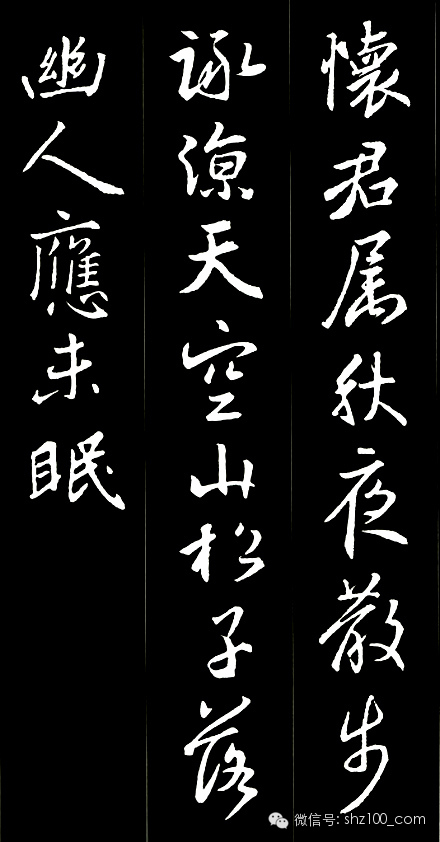 懷君属秋夜散步
詠涼天空山松子落
幽人應未眠
微信号: shz100_com